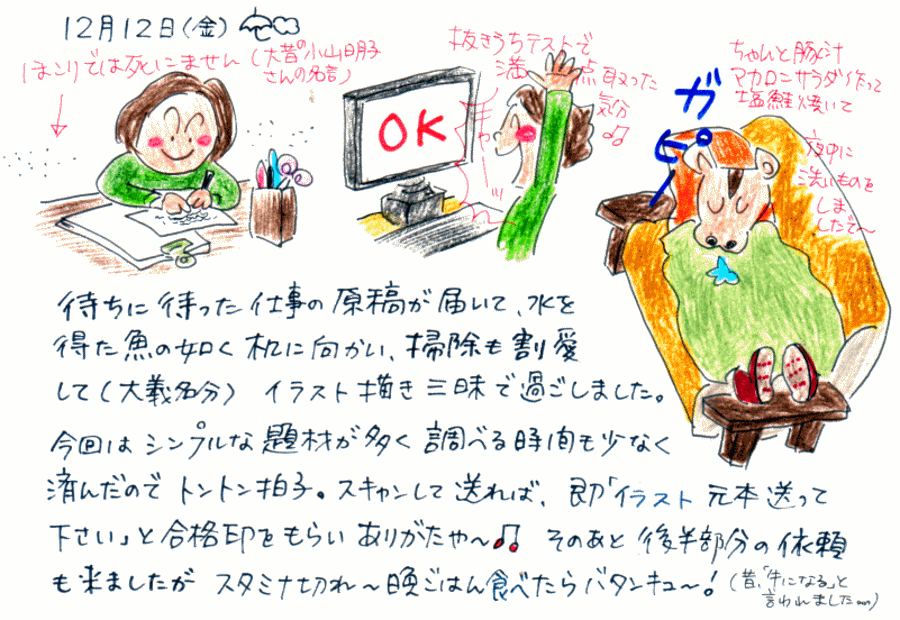 12月12日(金)
ほこりでは死にません(大昔の小山明子
さんの名言)
抜きうちテストで
満点取った
気分♫
OK
ギャーッ
ちゃんと豚汁
マカロニサラダ作って
塩鮭焼いて
夜中に
洗いものを
しま
したで〜
ガビーン
待ちに待った仕事の原稿が届いて、水を
得た魚の如く机に向かい、掃除も割愛
して(大義名分) イラスト描き三昧で過ごしました。
今回はシンプルな題材が多く調べる時間も少なく
済んだのでトントン拍子。スキャンして送れば、即「イラスト元本送って
下さい」と合格印をもらいありがたや〜♫ そのあと後半部分の依頼
も来ましたが スタミナ切れ〜晩ごはん食べたらバタンキュ〜!(昔、「牛になる」と
言われました)